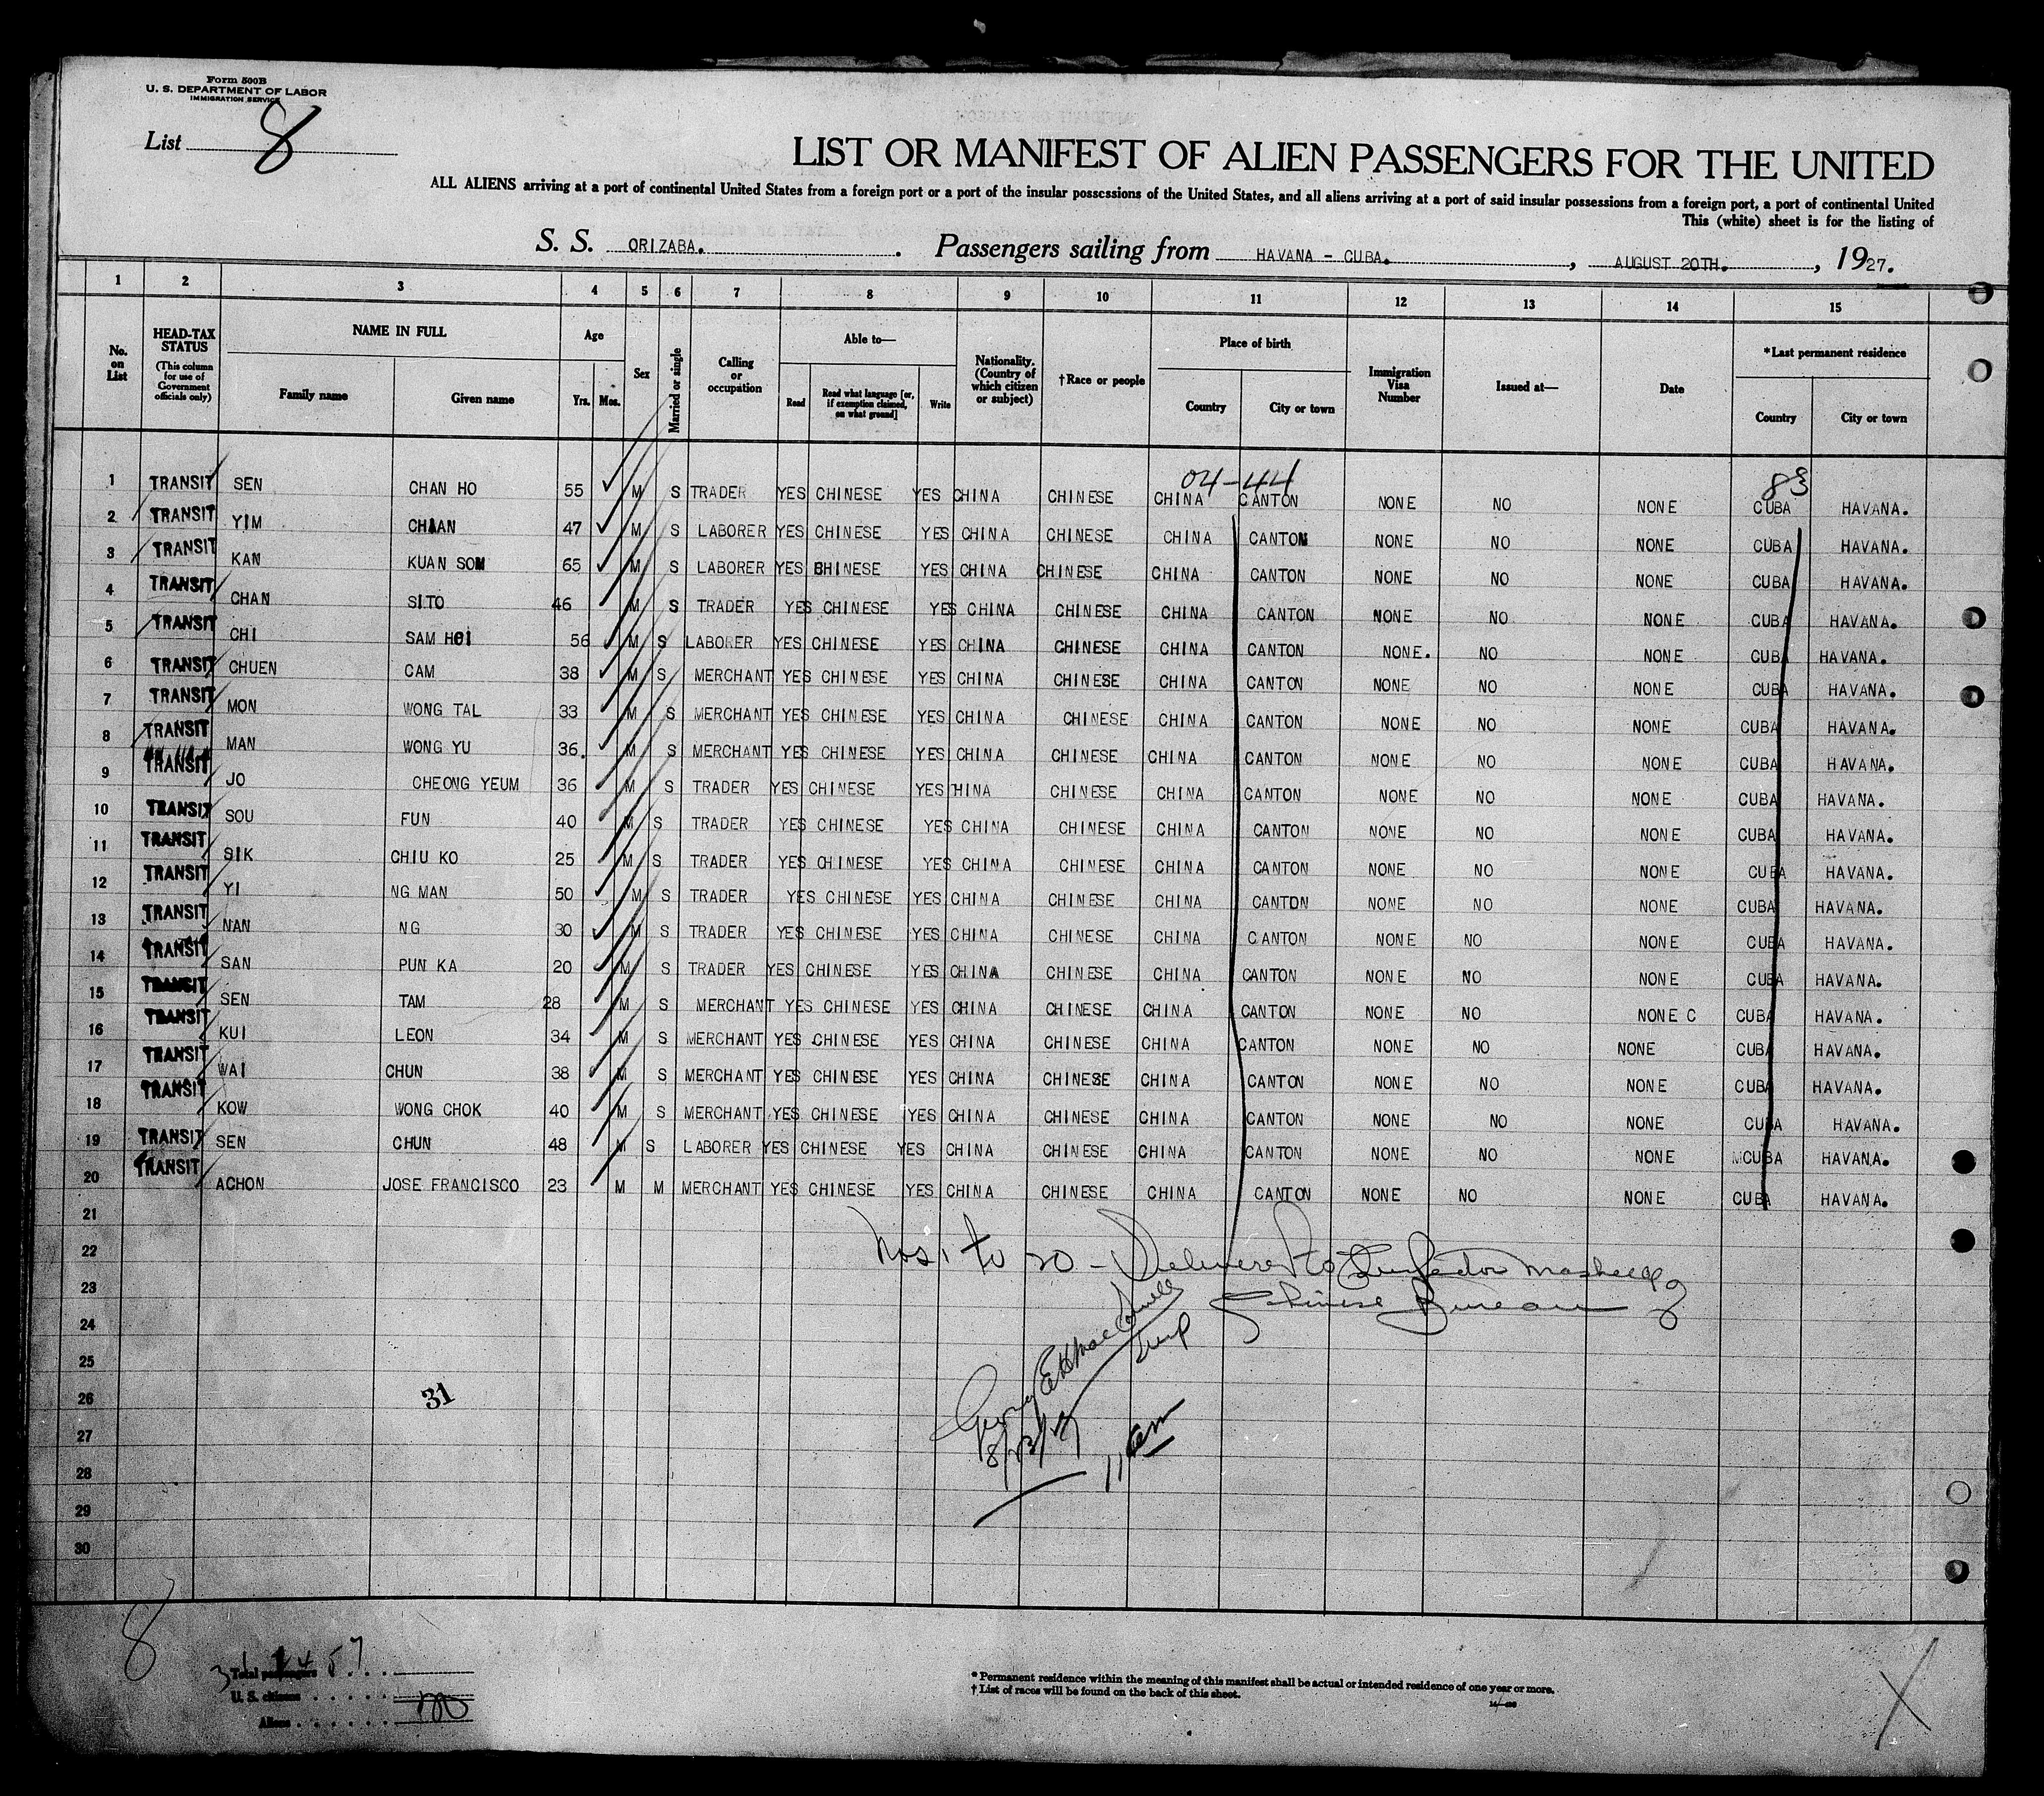 Form 500B
U. S. DEPARTMENT OF LABOR
IMMIGRATION SERVICE
List 8
LIST OR MANIFEST OF ALIEN PASSENGERS FOR THE UNITED
ALL ALIENS arriving at a port of continental United States from a foreign port or a port of the insular possessions of the United States, and all aliens arriving at a port of said insular possessions from a foreign port, a port of continental United
This (white) sheet is for the listing of
S. S. ORIZABA. Passengers sailing from HAVANA - CUBA. , AUGUST 20TH. , 1927.
1 2 3 4 5 6 7 8 9 10 11 12 13 14 15
No. on List HEAD-TAX STATUS (This column for use of Government officials only) NAME IN FULL Family name Given name Age Yrs. Mos. Sex Married or single Calling or occupation Able to— Read Read what language [or, if exemption claimed, on what ground] Write Nationality. (Country of which citizen or subject) †Race or people Place of birth Country City or town Immigration Visa Number Issued at— Date *Last permanent residence Country City or town
04-44 83
1 TRANSIT SEN CHAN HO 55 M S TRADER YES CHINESE YES CHINA CHINESE CHINA CANTON NONE NO NONE CUBA HAVANA.
2 TRANSIT YIM CHAN 47 M S LABORER YES CHINESE YES CHINA CHINESE CHINA CANTON NONE NO NONE CUBA HAVANA.
3 TRANSIT KAN KUAN SOM 65 M S LABORER YES CHINESE YES CHINA CHINESE CHINA CANTON NONE NO NONE CUBA HAVANA.
4 TRANSIT CHAN SITO 46 M S TRADER YES CHINESE YES CHINA CHINESE CHINA CANTON NONE NO NONE CUBA HAVANA.
5 TRANSIT CHI SAM HOI 56 M S LABORER YES CHINESE YES CHINA CHINESE CHINA CANTON NONE. NO NONE CUBA HAVANA.
6 TRANSIT CHUEN CAM 38 M S MERCHANT YES CHINESE YES CHINA CHINESE CHINA CANTON NONE NO NONE CUBA HAVANA.
7 TRANSIT MON WONG TAL 33 M S MERCHANT YES CHINESE YES CHINA CHINESE CHINA CANTON NONE NO NONE CUBA HAVANA.
8 TRANSIT MAN WONG YU 36. M S MERCHANT YES CHINESE YES CHINA CHINESE CHINA CANTON NONE NO NONE CUBA HAVANA.
9 TRANSIT JO CHEONG YEUM 36 M S TRADER YES CHINESE YES HINA CHINESE CHINA CANTON NONE NO NONE CUBA HAVANA.
10 TRANSIT SOU FUN 40 M S TRADER YES CHINESE YES CHINA CHINESE CHINA CANTON NONE NO NONE CUBA HAVANA.
11 TRANSIT SIK CHIU KO 25 M S TRADER YES CHINESE YES CHINA CHINESE CHINA CANTON NONE NO NONE CUBA HAVANA.
12 TRANSIT YI NG MAN 50 M S TRADER YES CHINESE YES CHINA CHINESE CHINA CANTON NONE NO NONE CUBA HAVANA.
13 TRANSIT NAN NG 30 M S TRADER YES CHINESE YES CHINA CHINESE CHINA CANTON NONE NO NONE CUBA HAVANA.
14 TRANSIT SAN PUN KA 20 M S TRADER YES CHINESE YES CHINA CHINESE CHINA CANTON NONE NO NONE CUBA HAVANA.
15 TRANSIT SEN TAM 28 M S MERCHANT YES CHINESE YES CHINA CHINESE CHINA CANTON NONE NO NONE C CUBA HAVANA.
16 TRANSIT KUI LEON 34 M S MERCHANT YES CHINESE YES CHINA CHINESE CHINA CANTON NONE NO NONE CUBA HAVANA.
17 TRANSIT WAI CHUN 38 M S MERCHANT YES CHINESE YES CHINA CHINESE CHINA CANTON NONE NO NONE CUBA HAVANA.
18 TRANSIT KOW WONG CHOK 40 M S MERCHANT YES CHINESE YES CHINA CHINESE CHINA CANTON NONE NO NONE CUBA HAVANA.
19 TRANSIT SEN CHUN 48 M S LABORER YES CHINESE YES CHINA CHINESE CHINA CANTON NONE NO NONE CUBA HAVANA.
20 TRANSIT ACHON JOSE FRANCISCO 23 M M MERCHANT YES CHINESE YES CHINA CHINESE CHINA CANTON NONE NO NONE CUBA HAVANA.
21
22 Nos 1 to 20 - Delivered to Inspector
23 Chinese Bureau
24 Insp
25
26 31
27 8/23/27 11 am
28
29
30
8
Total passengers
U. S. citizens
Aliens 20
* Permanent residence within the meaning of this manifest shall be actual or intended residence of one year or more.
† List of races will be found on the back of this sheet.
X